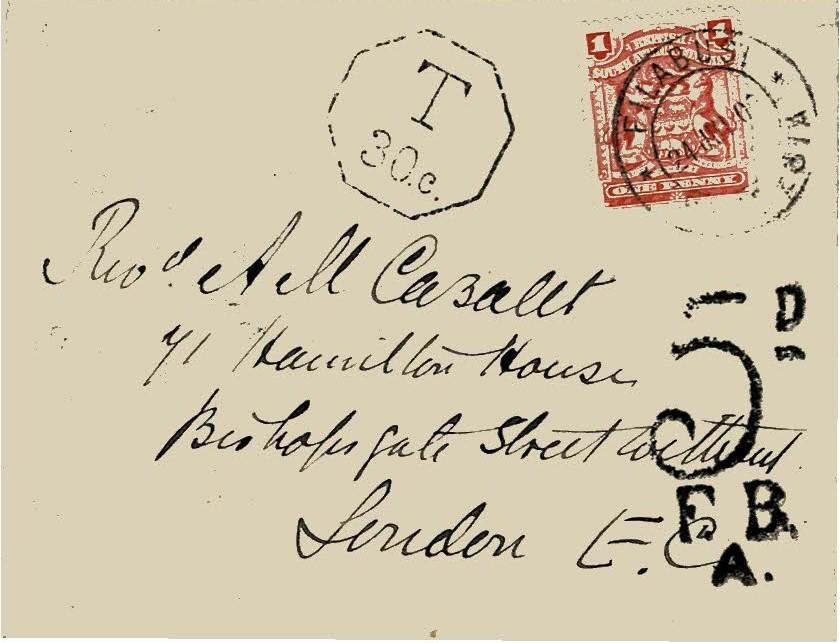 T
30c.
1 1
BRITISH
SOUTH AFRICA
ONE PENNY
FILABUSI
24
Revd. A M Cazalet
71 Hamilton House
Bishopsgate Street Without
London E.C.
5D
F.B.
A.